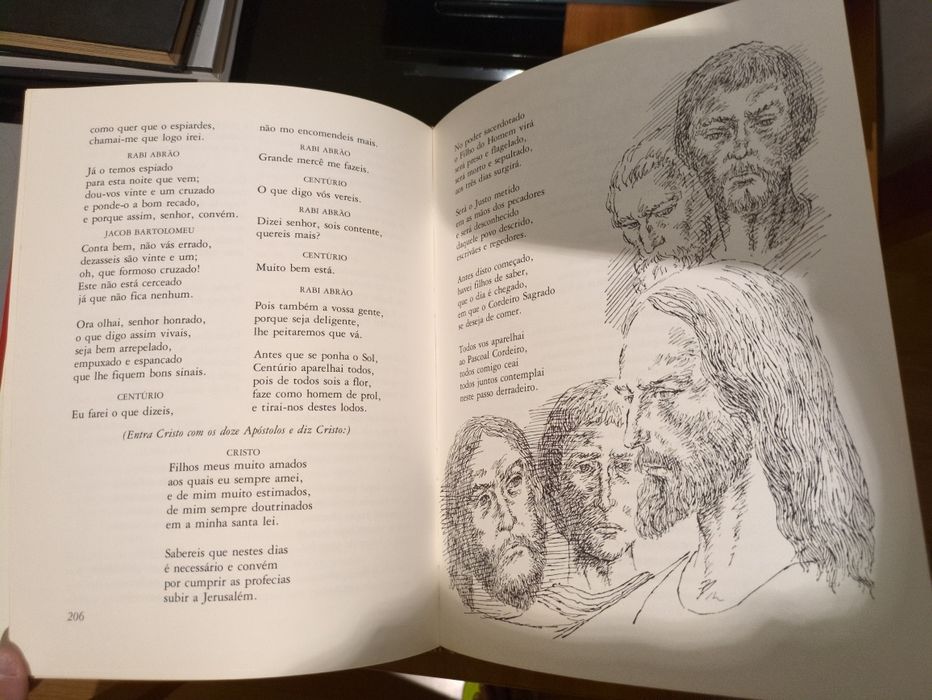 como quer que o espiardes,
chamai-me que logo irei.
RABI ABRÃO
Já o temos espiado
para esta noite que vem;
dou-vos vinte e um cruzado
e ponde-o a bom recado,
e porque assim, senhor, convém.
JACOB BARTOLOMEU
Conta bem, não vás errado,
dezasseis são vinte e um;
oh, que formoso cruzado!
Este não está cerceado
já que não fica nenhum.
Ora olhai, senhor honrado,
o que digo assim vivais,
seja bem arrepelado,
empuxado e espancado
que lhe fiquem bons sinais.
CENTÚRIO
Eu farei o que dizeis,
não mo encomendeis mais.
RABI ABRÃO
Grande mercê me fazeis.
CENTÚRIO
O que digo vós vereis.
RABI ABRÃO
Dizei senhor, sois contente,
quereis mais?
CENTÚRIO
Muito bem está.
RABI ABRÃO
Pois também a vossa gente,
porque seja deligente,
lhe peitaremos que vá.
Antes que se ponha o Sol,
Centúrio aparelhai todos,
pois de todos sois a flor,
faze como homem de prol,
e tirai-nos destes lodos.
(Entra Cristo com os doze Apóstolos e diz Cristo:)
CRISTO
Filhos meus muito amados
aos quais eu sempre amei,
e de mim muito estimados,
de mim sempre doutrinados
em a minha santa lei.
Sabereis que nestes dias
é necessário e convém
por cumprir as profecias
subir a Jerusalém.
206
No poder sacerdotado
o Filho do Homem virá
será preso e flagelado,
será morto e sepultado,
aos três dias surgirá.
Será o Justo metido
em as mãos dos pecadores
e será desconhecido
daquele povo descrido,
escrivães e regedores.
Antes disto começado,
havei filhos de saber,
que o dia é chegado,
em que o Cordeiro Sagrado
se deseja de comer.
Todos vos aparelhai
ao Pascoal Cordeiro,
todos comigo ceai
todos juntos contemplai
neste passo derradeiro.